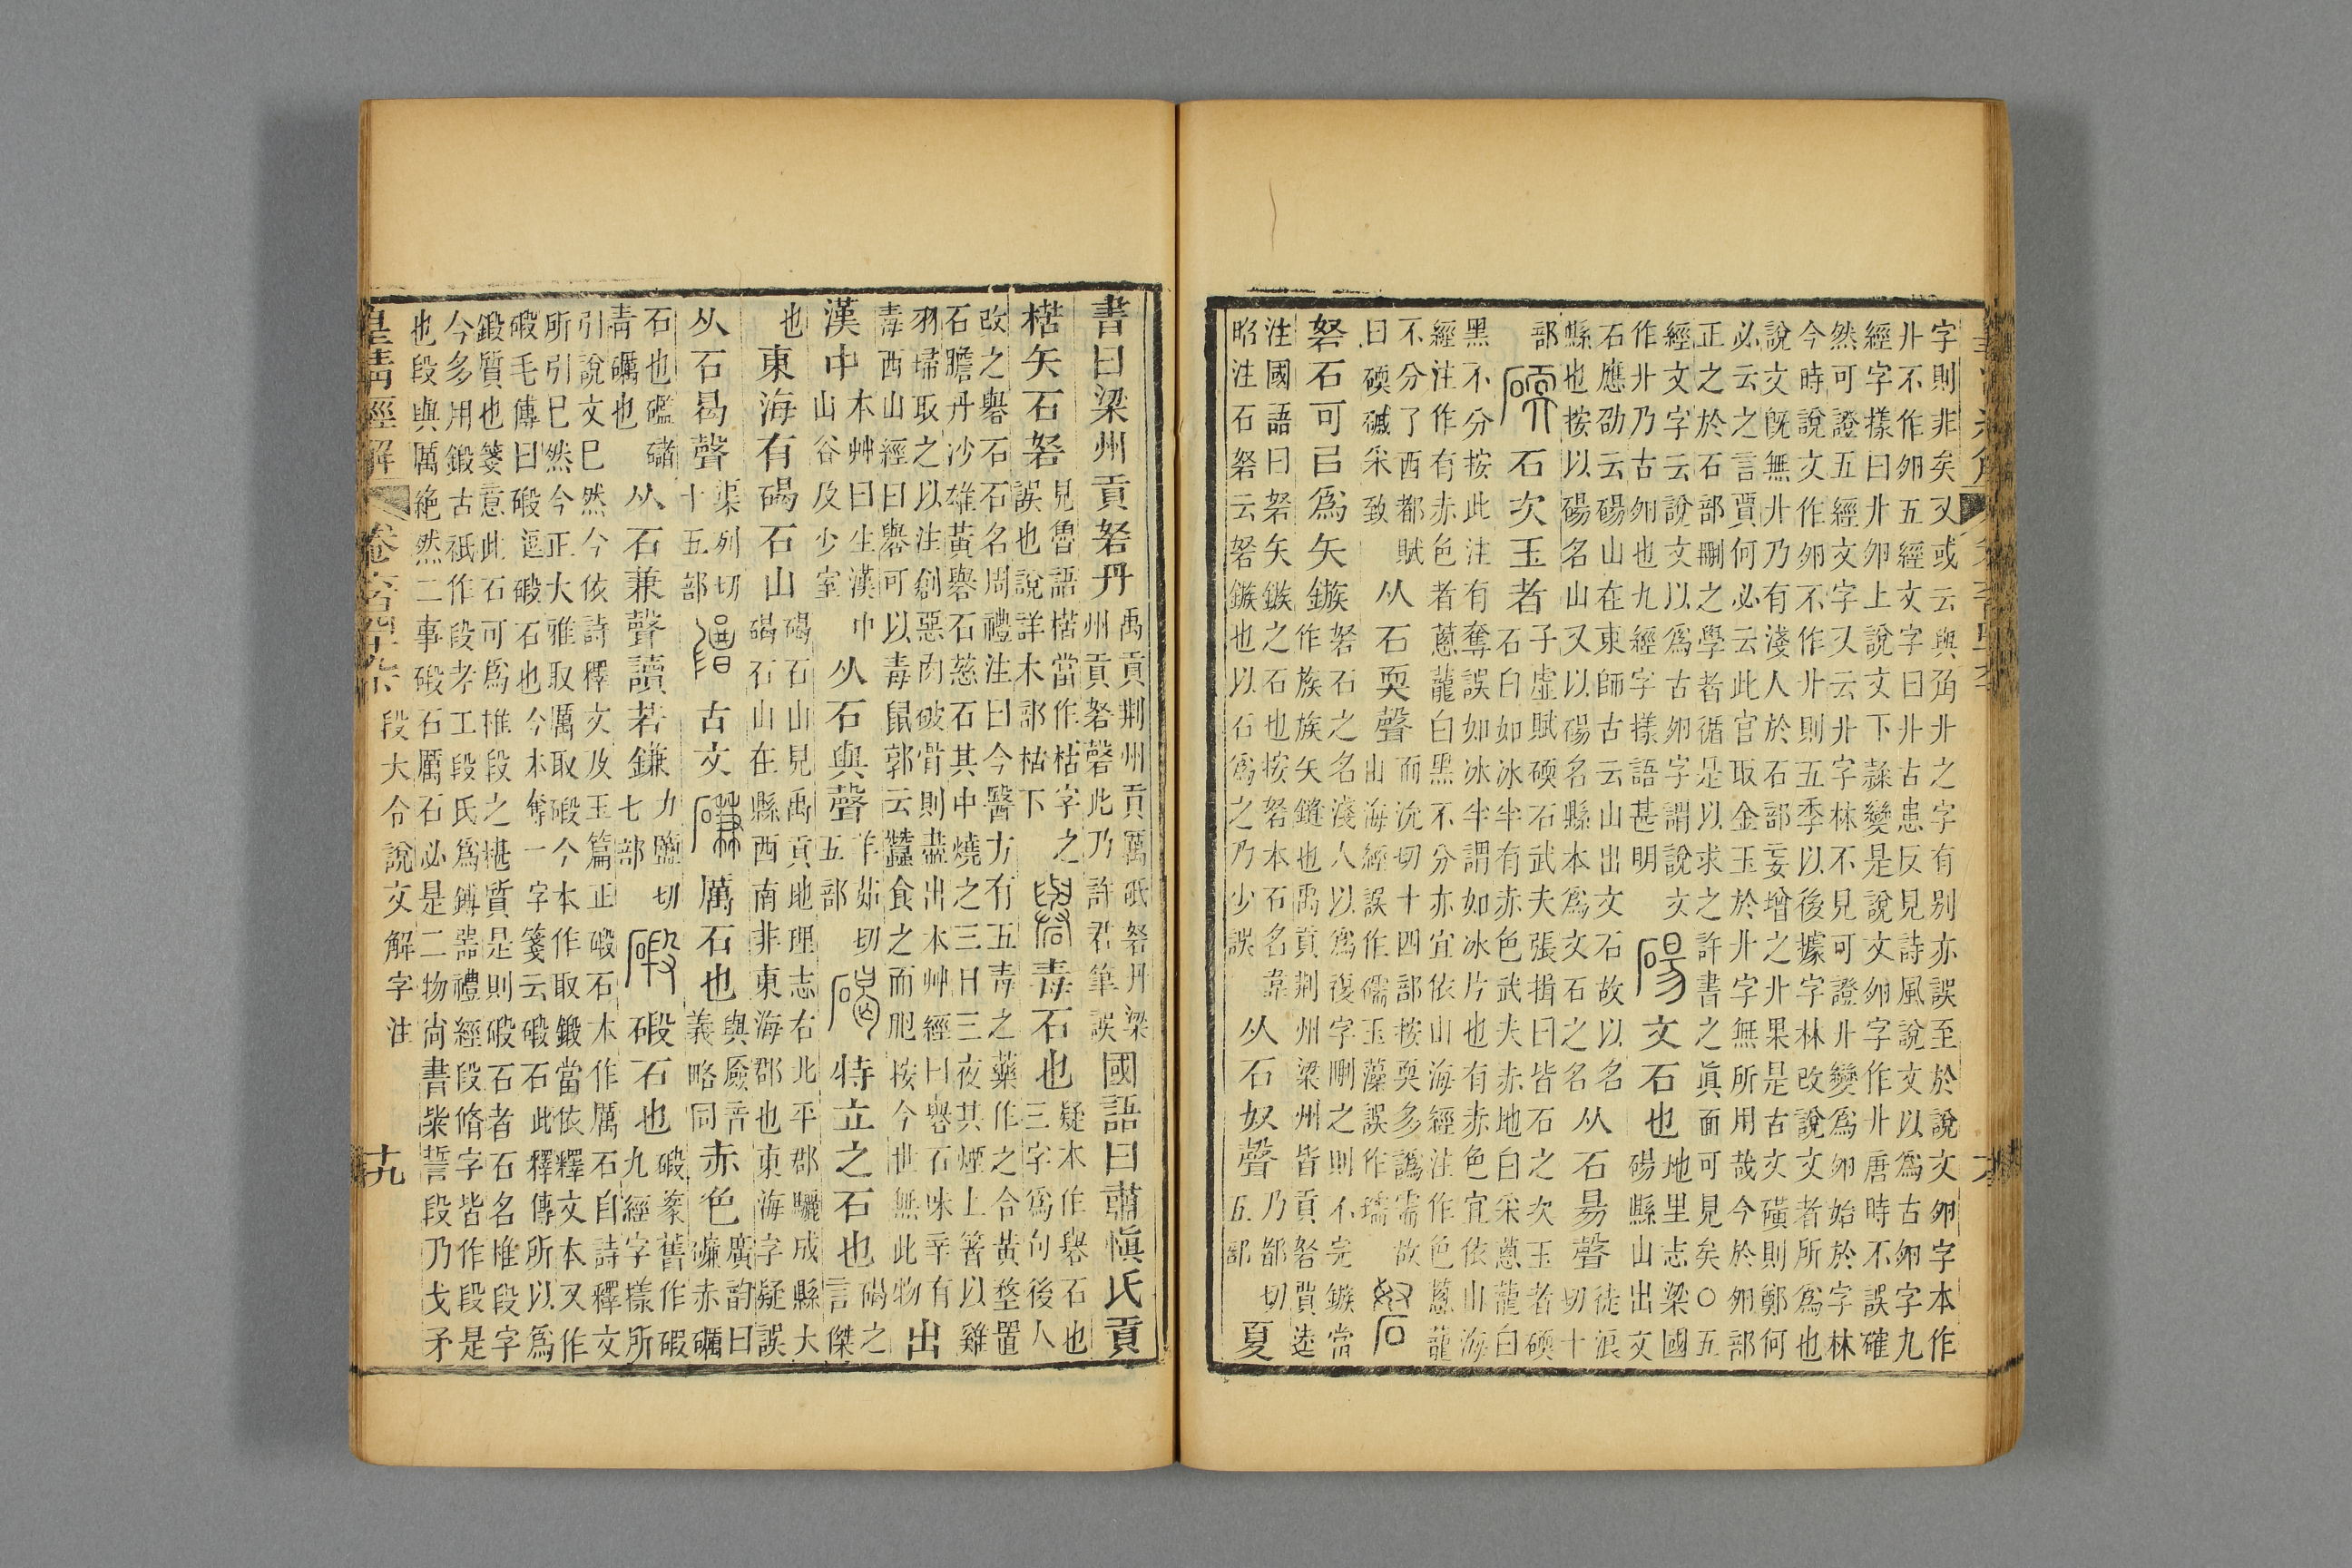 字則非矣又或云與𧢲卝之字有别亦誤至於說文卵字本作
卝不作卵五經文字曰卝古患反見詩風說文以爲古卵字九
經字樣曰卝卵上說文下隸變是說文卵字作卝唐時不誤確
然可證五經文字又云卝字林不見可證卝變爲卵始於字林
今時說文作卵不作卝則五季以後據字林改說文者所爲也
說文旣無卝乃有淺人於石部妄增之卝果是古文磺則鄭何
必云之言賈何必云此官取金玉於卝字無所用哉今於卵部
正之於石部刪之學者循是以求之許書之眞面可見矣○五
經文字云說文以爲古卵字謂說文
作卝乃古卵也九經字樣語甚明
碭文石也
地里志梁國
碭縣山出文
石應劭云碭山在東師古云山出文石故以名
縣也按以碭名山又以碭名縣本爲文石之名
从石昜聲
徒浪
切十
部
碝石次玉者
子虛賦碝石武夫張揖曰皆石之次玉者碝
石白如冰半有赤色武夫赤地白采蔥蘢白
黑不分按此注有奪誤如冰半謂如冰片也有赤色宜依山海
經注作有赤色者蔥蘢白黑不分亦宜依山海經注作色蔥蘢
不分了西都賦
曰碝磩采致
从石耎聲
而沇切十四部按耎多譌需故
山海經誤作礝玉藻誤作瓀
砮
砮石可㠯爲矢鏃
砮石之名淺人以爲複字刪之則不完鏃當
作族族矢鏠也禹貢荆州梁州皆貢砮賈逵
注國語曰砮矢鏃之石也按砮本石名韋
昭注石砮云砮鏃也以石爲之乃少誤
从石奴聲
乃都切
五部
夏
書曰梁州貢砮丹
禹貢荆州貢厲砥砮丹梁
州貢砮磬此乃許君筆誤
國語曰肅愼氏貢
楛矢石砮
見魯語楛當作枯字之
誤也說詳木部枯下
礜毒石也
疑本作礜石也
三字爲句後人
改之礜石石名周禮注曰今醫方有五毒之藥作之合黃堥置
石膽丹沙雄黃礜石慈石其中燒之三日三夜其煙上箸以雞
羽埽取之以注創惡肉破骨則盡出本艸經曰礜石味辛有
毒西山經曰礜可以毒鼠郭云蠶食之而肥按今世無此物
出
漢中
本艸曰生漢中
山谷及少室
从石與聲
羊茹切
五部
碣特立之石也
碣之
言傑
也
東海有碣石山
碣石山見禹貢地理志右北平郡驪成縣大
碣石山在縣西南非東海郡也東海字疑誤
从石曷聲
渠列切
十五部
古文
磏厲石也
與廉音
義略同
赤色
廣韵曰
磏赤礪
石也礛䃴
青礪也
从石兼聲讀若鎌
力鹽切
七部
碫碫石也
碫篆舊作碬
九經字樣所
引說文巳然今依詩釋文及玉篇正碫石本作厲石自詩釋文
所引巳然今正大雅取厲取碫今本作取鍛當依釋文本又作
碫毛傳曰碫逗碫石也今本奪一字箋云碫石此釋傳所以爲
鍛質也箋意此石可爲椎段之椹質是則碫石者石名椎段字
今多用鍛古祇作段考工段氏爲鎛器禮經段脩字皆作段是
也段與厲絶然二事碫石厲石必是二物尙書粊誓段乃戈矛
皇清經解 段大令說文解字注 十九